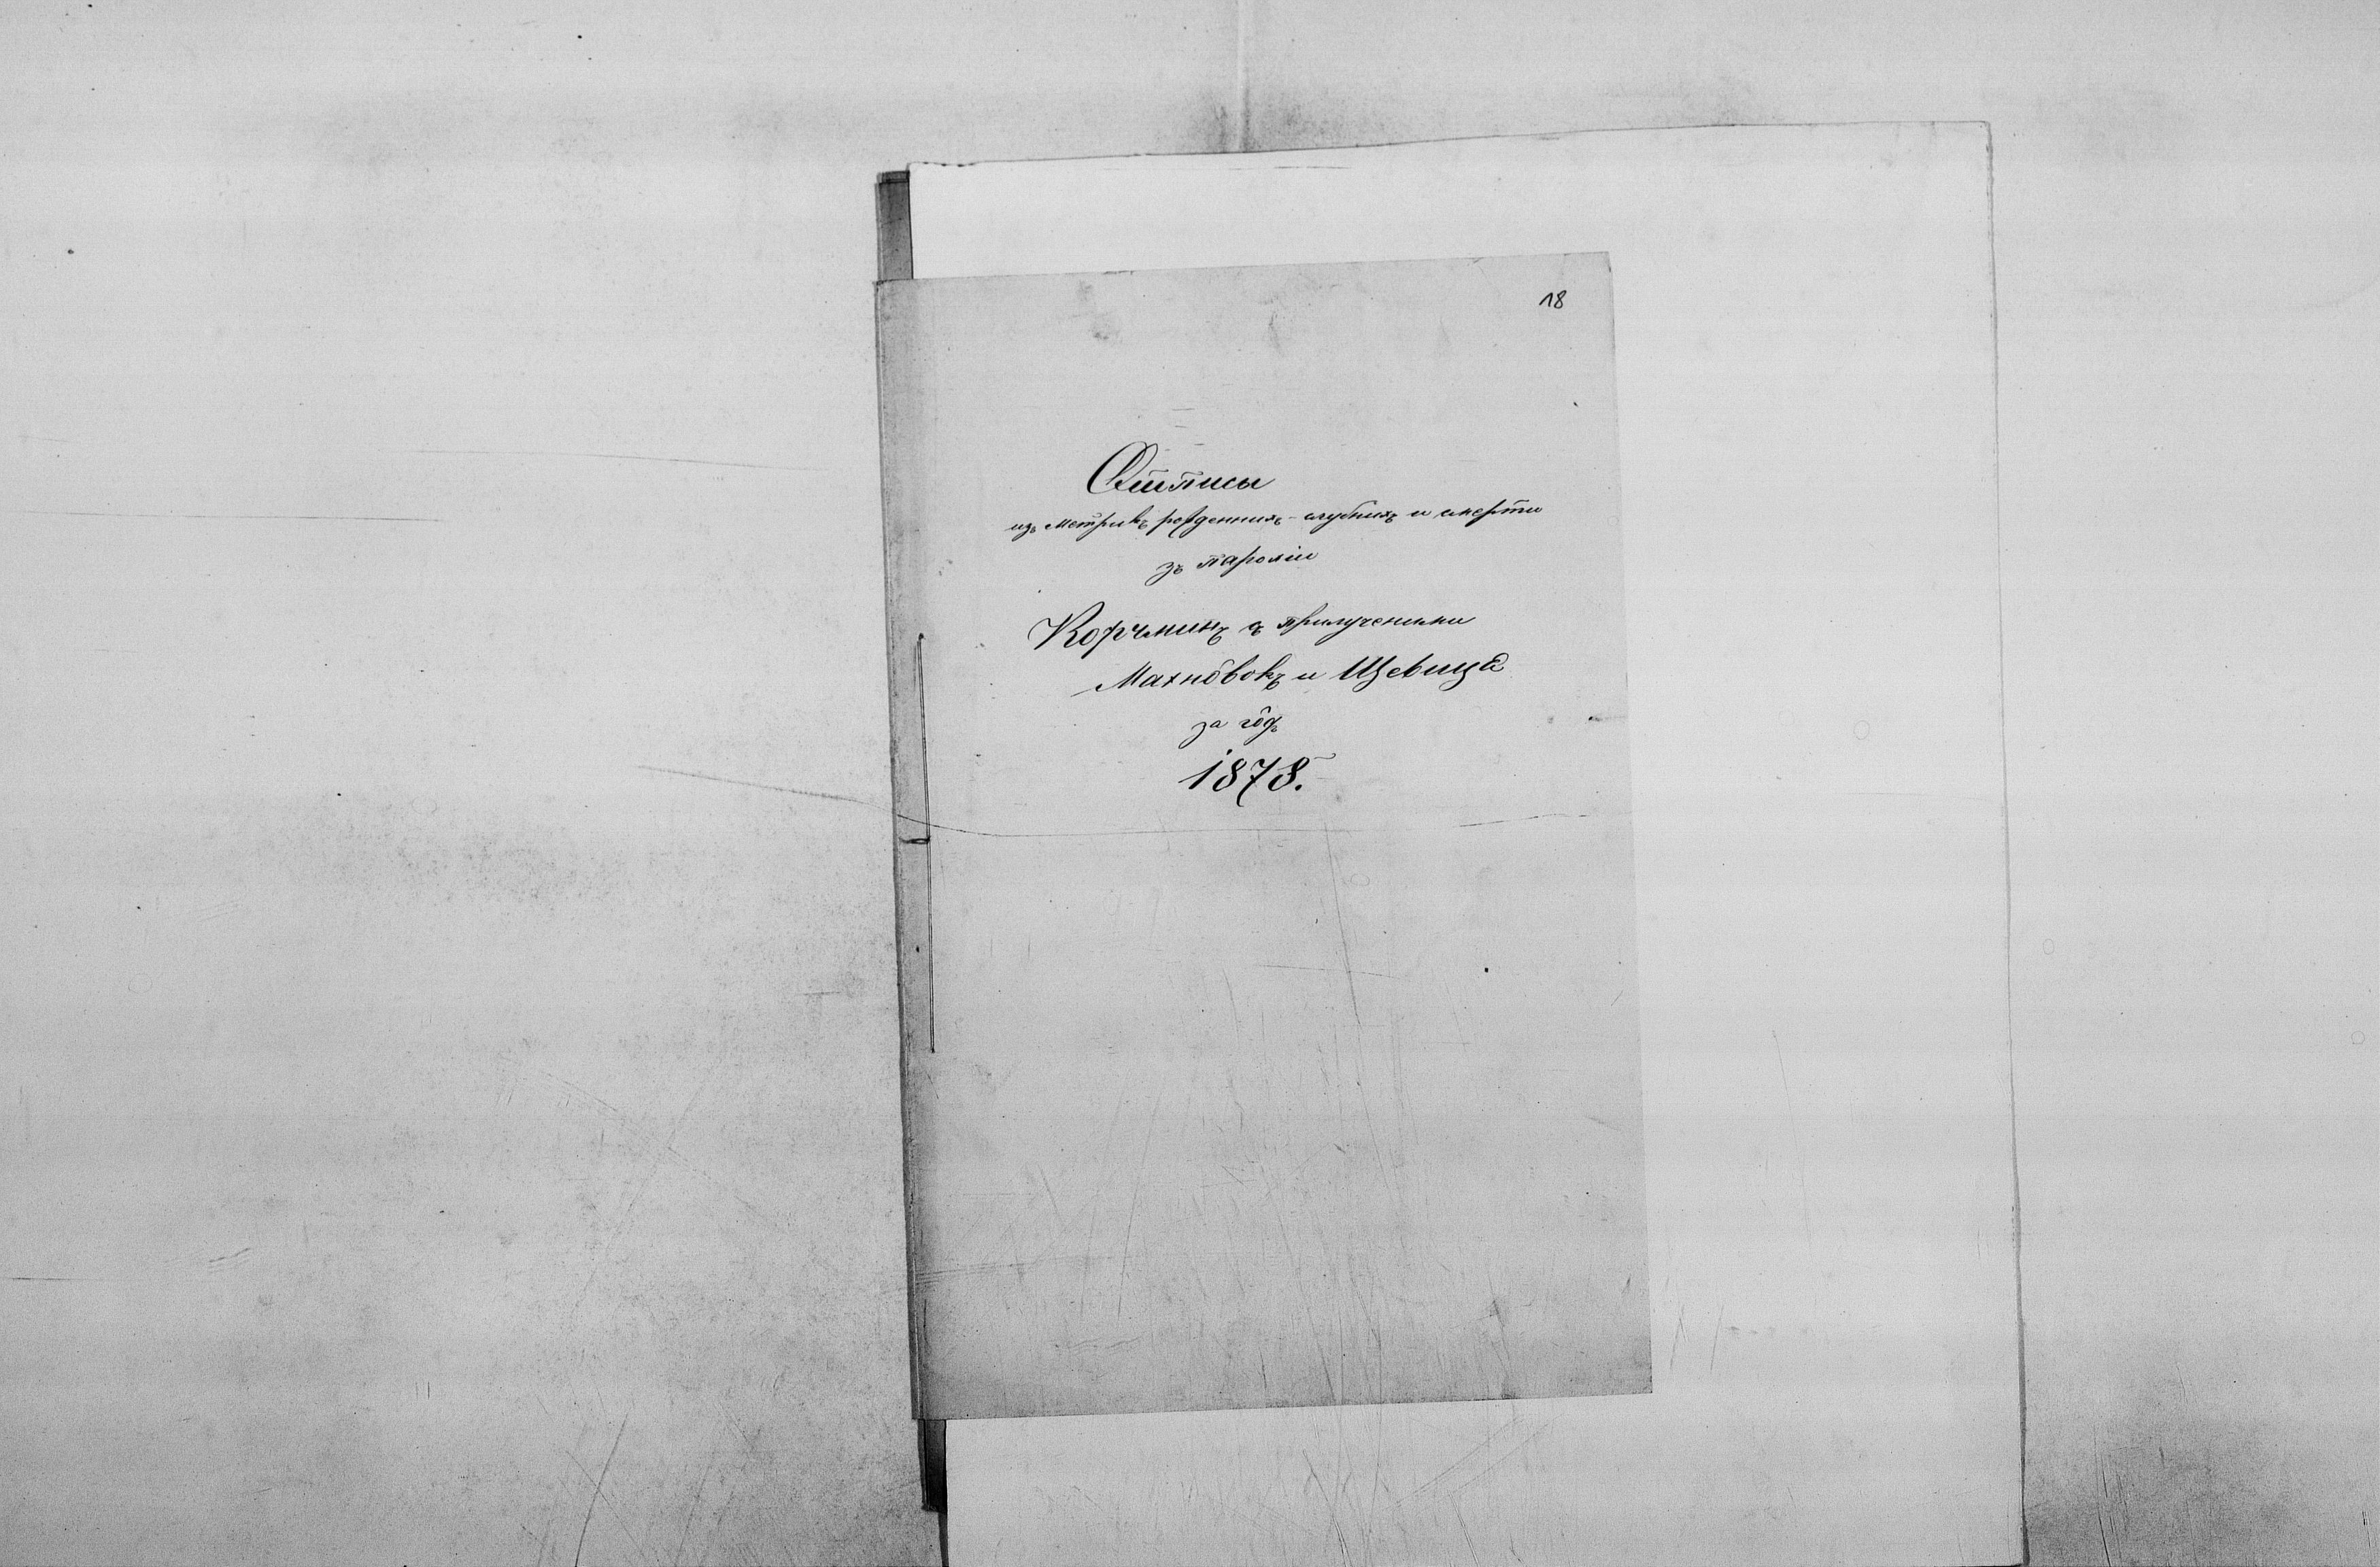 18
Отписы
изъ метрикъ рожденныхъ - слубныхъ и смерти
зъ парохіи
Корчминъ съ прилученыма
Махнôвокъ и Щевица
за гôдъ
1878.